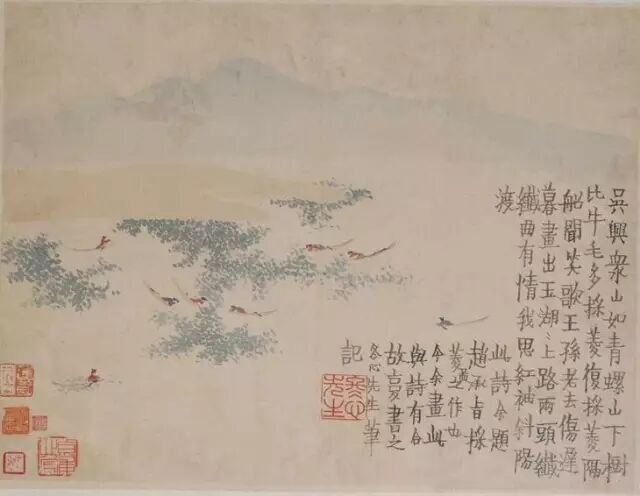 吳興衆山如青螺山下樹
比牛毛多採菱復採菱隔
船聞笑歌王孫老去傷遲
暮畫出玉湖〻上路兩頭纖
纖曲有情我思紅袖斜陽
渡
此詩余題
趙承旨採
菱啚之作也
今余畫此
與詩有合
故書之
冬心先生筆
記
冬心先生